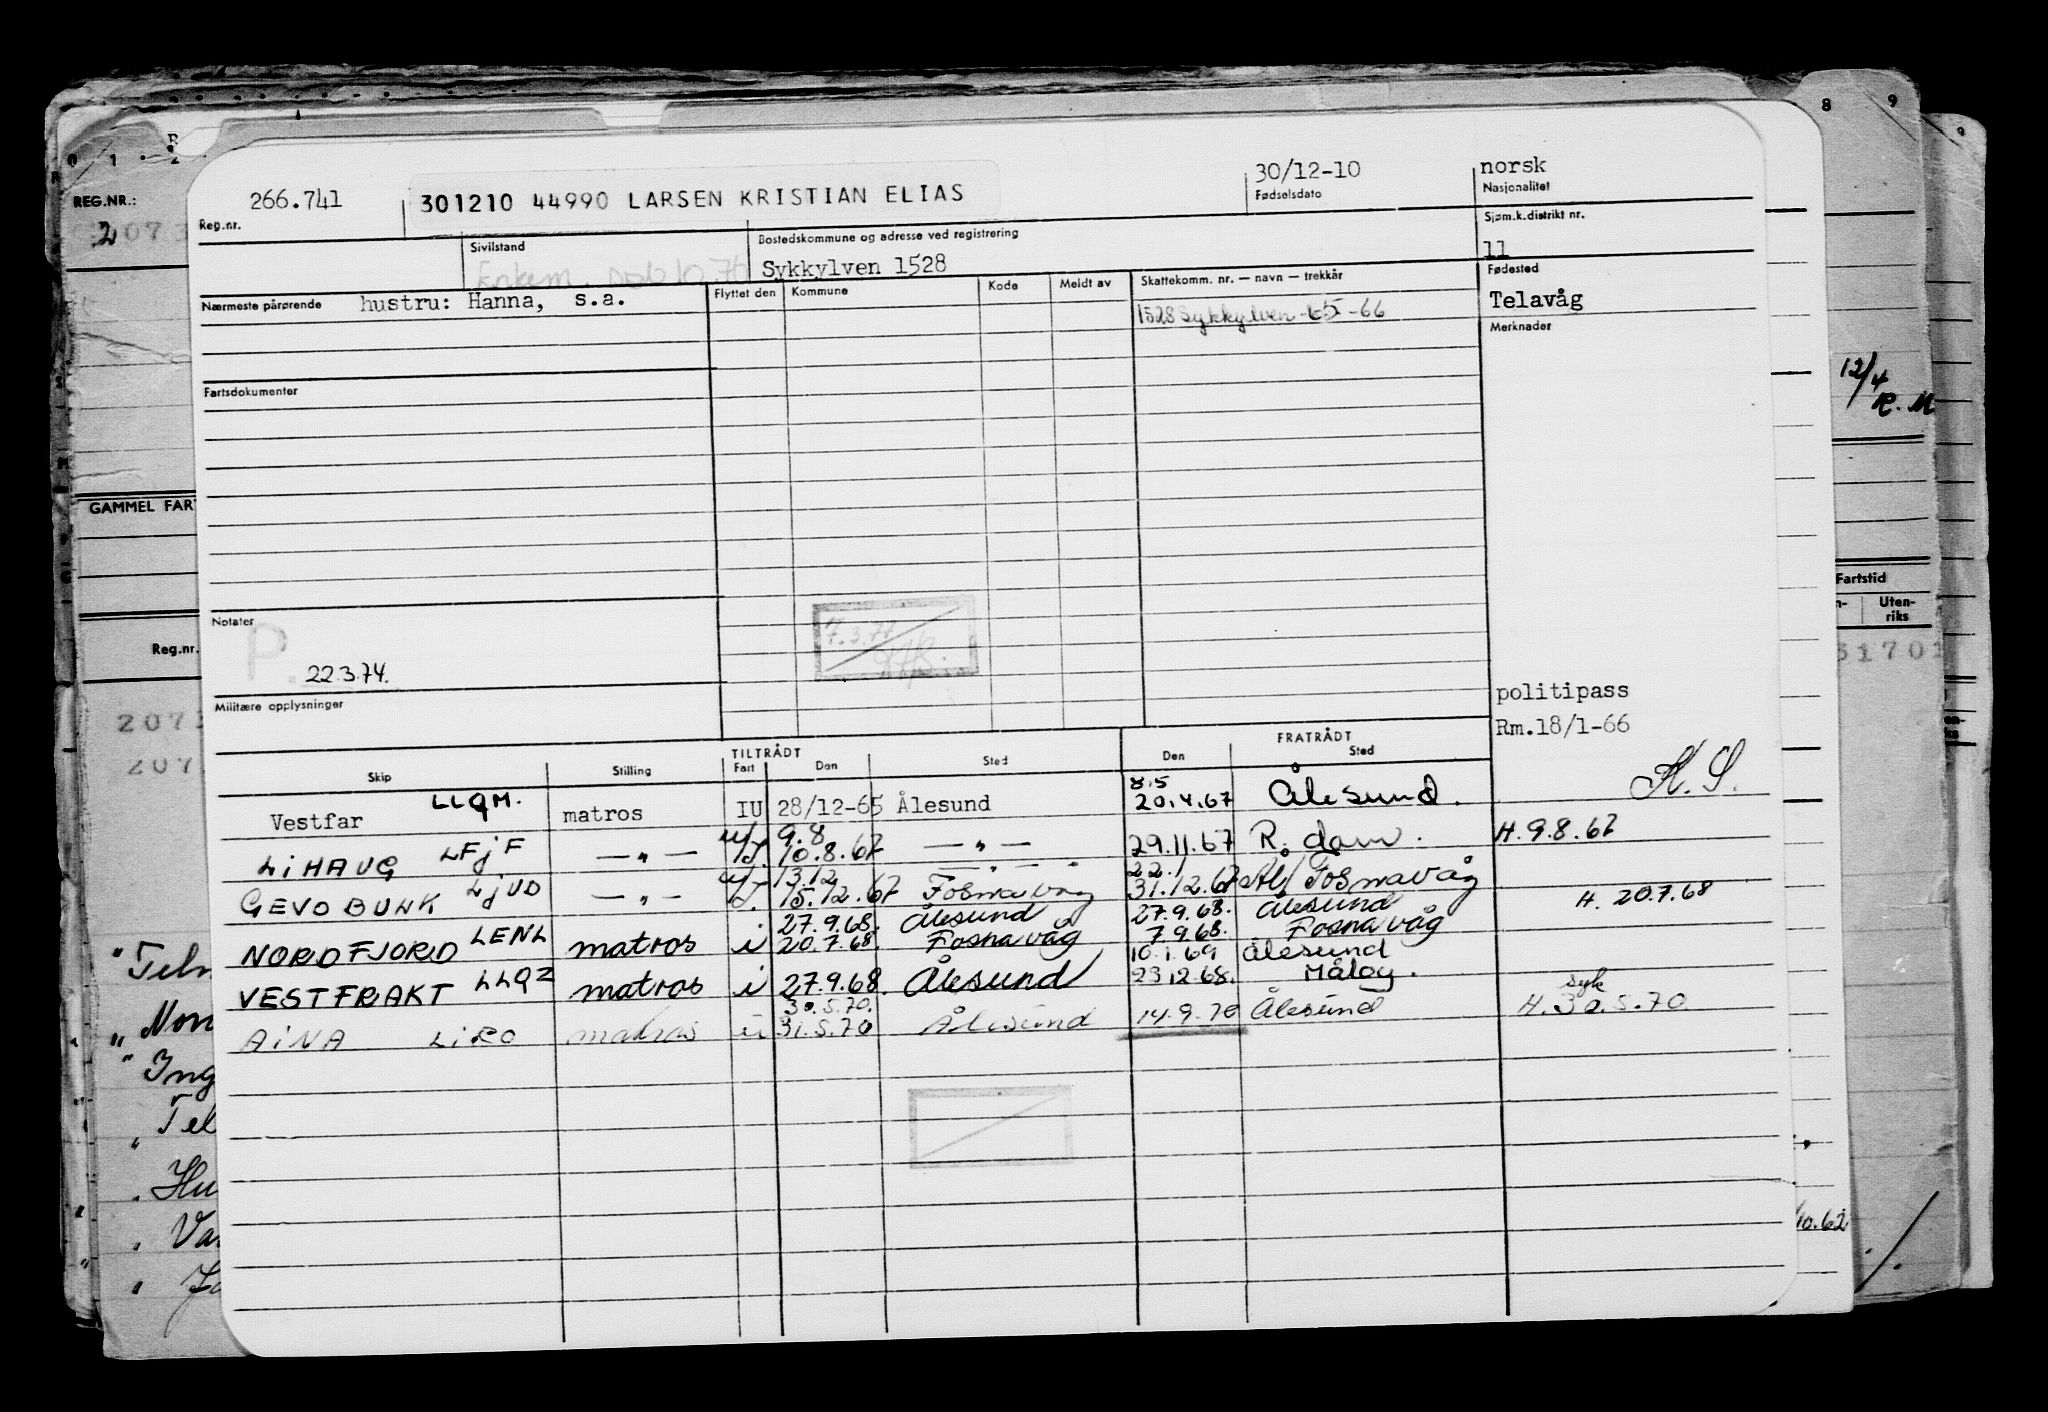 8 9
9
0 1 2
R
REG.NR.:
2073
GAMMEL FAR
Reg.nr.
2073
207
"Teln
" Non
" Ing
" Tel
" Hu
" Va
12/4
R. M
Fartstid
Uten-
riks
31701
10.62
266.741
Reg.nr.
301210 44990 LARSEN KRISTIAN ELIAS
30/12-10
Fødselsdato
norsk
Nasjonalitet
Sjøm.k.distrikt nr.
11
Sivilstand
Bostedskommune og adresse ved registrering
Sykkylven 1528
Fødested
Telavåg
Nærmeste pårørende hustru: Hanna, s.a.
Flyttet den Kommune Kode Meldt av Skattekomm. nr. — navn — trekkår
1528 Sykkylven -65-66
Merknader
Fartsdokumenter
Notater
P. 22.3.74.
7.3.77
Militære opplysninger
politipass
Rm.18/1-66
K. S.
TILTRÅDT FRATRÅDT
Skip Stilling Fart Den Sted Den Sted
8.5
Vestfar LLQM. matros IU 28/12-65 Ålesund 20.4.67 Ålesund.
9.8
LiHAUG LFjF — " — U/I. 10.8.67 — " — 29.11.67 R.dam. H.9.8.67
13.12 — " — 22.1
GEVOBULK LjUD — " — U/I. 15.12.67 Fosnavåg 31.12.67 Ål/Fosnavåg
27.9.68. Ålesund 27.9.68. Ålesund H. 20.7.68
NORDFJORD LENL matros i 20.7.68. Fosnavåg 7.9.68. Fosnavåg
10.1.69 Ålesund
VESTFRAKT LLQZ matros i 27.9.68. Ålesund 23.12.68. Måløy.
30.5.70. syk
AiNA LiRO matros u 31.5.70 Ålesund 14.9.70 Ålesund H.30.5.70.